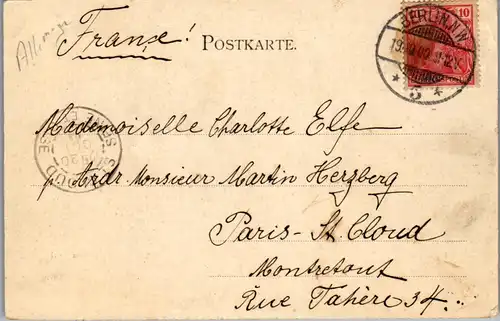 France!
POSTKARTE.
10
BERLIN. N.W.
Mademoiselle Charlotte Elfe
p. Adr. Monsieur Martin Herzberg
Paris-St. Cloud
Montretout
Rue Tahère 34.